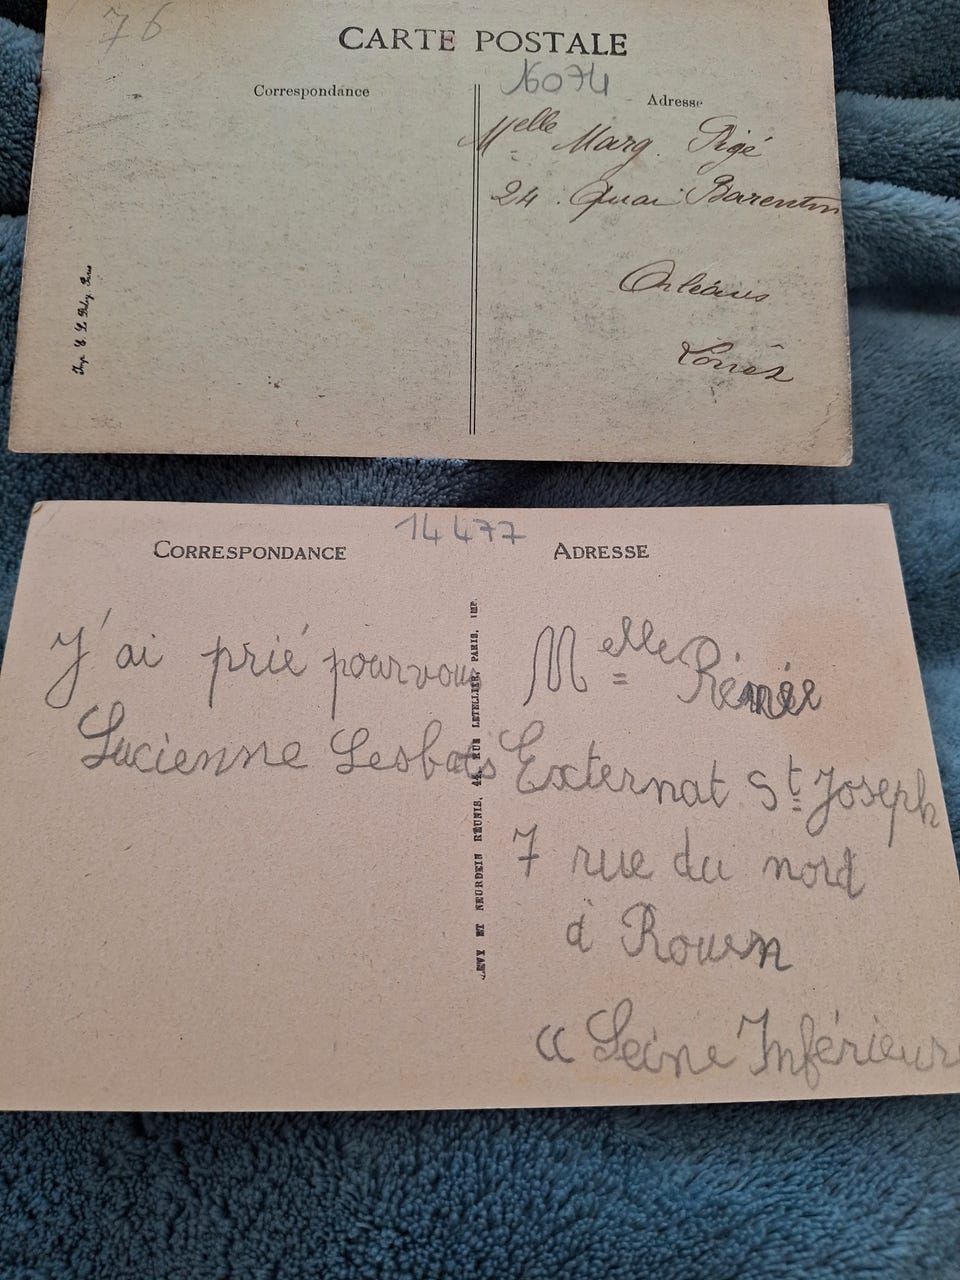 76
CARTE POSTALE
16074
Correspondance
Adresse
Melle Marg. Pigé
24. Quai Barentin
Orléans
Loiret
Imp. Paris
14477
CORRESPONDANCE
ADRESSE
J'ai prié pour vous
Lucienne Lesbats
LEVY ET NEURDEIN RÉUNIS, 44, RUE LETELLIER, PARIS, IMP.
Melle
Externat St Joseph
7 rue du nord
à Rouen
Seine Inférieure